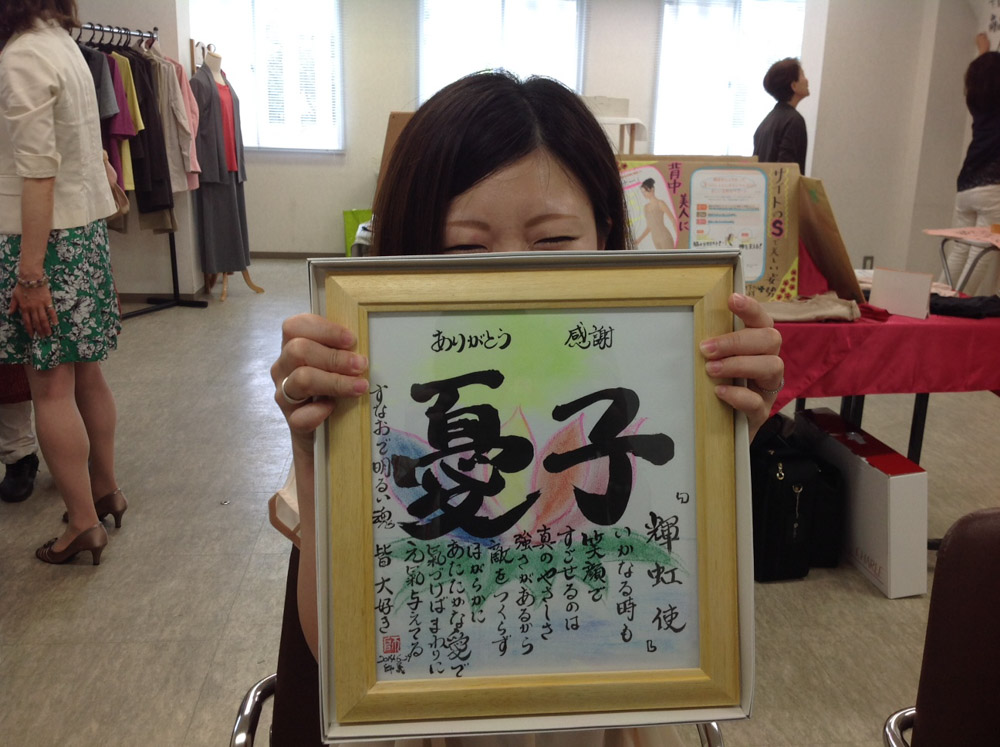 ありがとう 感謝
憂子
『輝虹使』
いかなる時も
笑顔で
すごせるのは
真のやさしさ
強さがあるから
敵をつくらず
ほがらかに
あたたかな愛で
氣づけばまわりに
元氣与えてる
すなおで明るい魂 皆大好き
背中
美人に
サイトウS